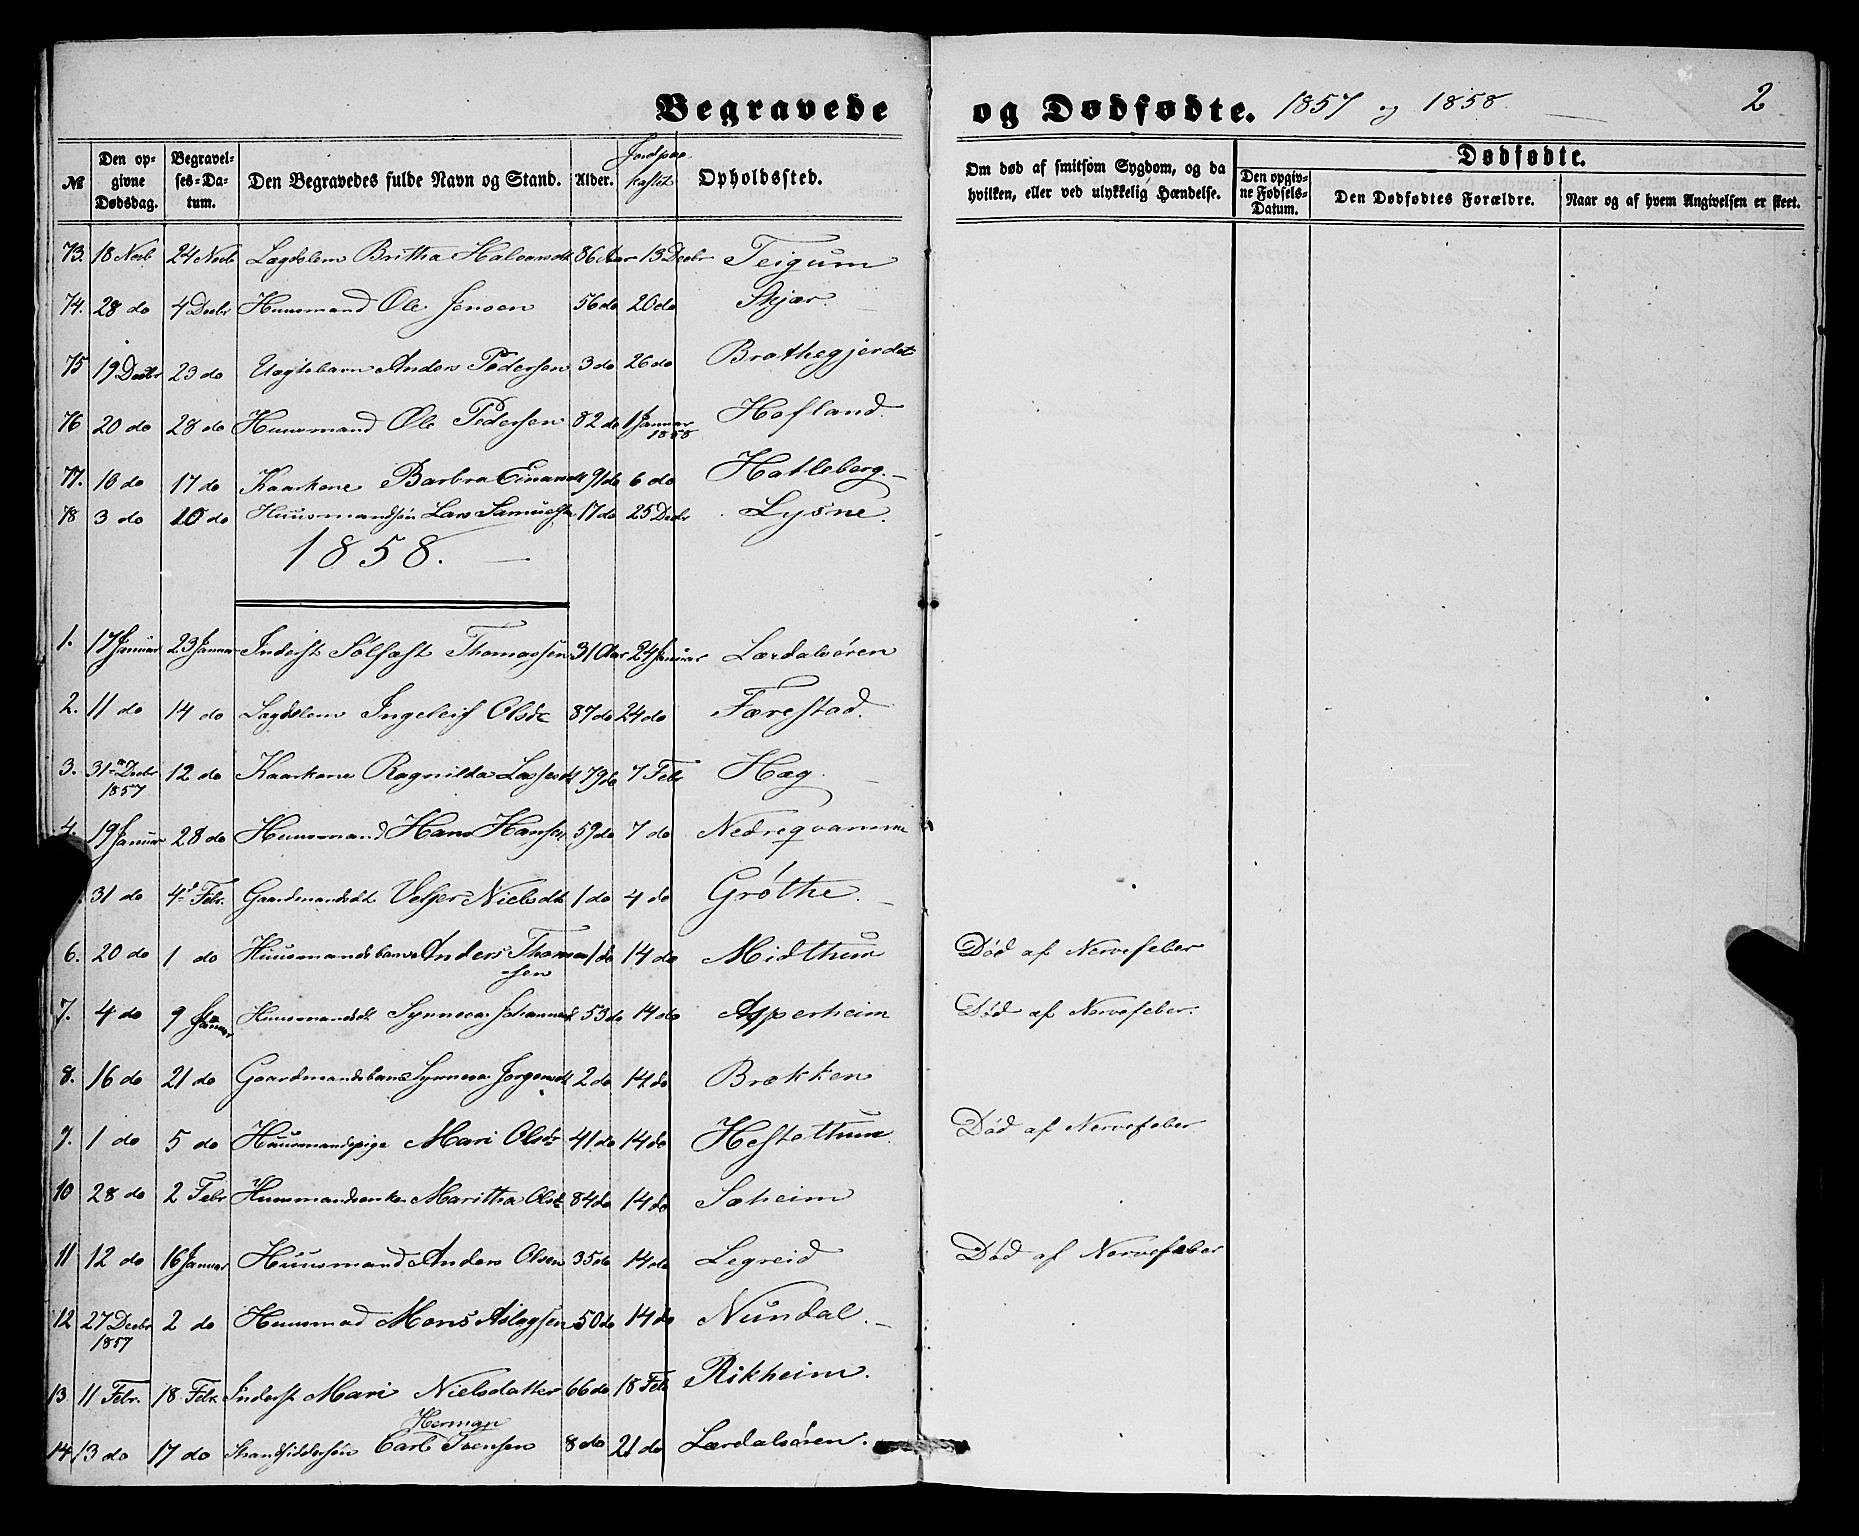 Begravede og Dødfødte. 1857 og 1858. 2
№ Den opgivne Dødsdag. Begravelses-Datum. Den Begravedes fulde Navn og Stand. Alder. Jordpaakastet Opholdssted. Om død af smitsom Sygdom, og da hvilken, eller ved ulykkelig Hændelse. Dødfødte. Den opgivne Fødsels-Datum. Den Dødfødtes Forældre. Naar og af hvem Angivelsen er skeet.
73. 18 Novb 24 Novb Lægdslem Britha Halvarsdt 86 Aar 13 Decbr Teigum
74. 28 do 4 Decbr Huusmand Ole Jensen 56 do 20 do Skjær
75 19 Decbr 23 do Uægtebarn Anders Pedersen 3 do 26 do Brathegjerdet
76 20 do 28 do Huusmand Ole Pedersen 82 do 1 Januar 1858 Hofland
77. 10 do 17 do Kaarkone Barbra Einarsdt 91 do 6 do Hatleberg.
78 3 do 10 do Huusmandssøn Lars Samuels 17 do 25 Decbr Lysne.
1858.
1. 17 Januar 23 Januar Inderst Sølfæst Thomassen 31 Aar 24 Januar Lærdalsøren
2. 11 do 14 do Lægdslem Ingeleif Olsdt 87 do 24 do Færestad.
3. 31 Decbr 1857 12 do Kaarkone Ragnilda Lassesdt 79 do 7 Febr Hæg
4. 19 Januar 28 do Huusmand Hans Hansen 59 do 7 do Nedreqvamme
31 do 4 Febr. Gaardmandsdt Nielsdt 1 do 4 do Grøthe.
6. 20 do 1 do Huusmandsbarn Anders Thomassen 1 do 14 do Midthun Død af Nervefeber
7. 4 do 9 Januar Huusmandsdt Synneva Johannesdt 53 do 14 do Æpperheim Død af Nervefeber.
8. 16 do 21 do Gaardmandsbarn Synneva Jørgensdt 2 do 14 do Brækken
9. 1 do 5 do Huusmandspige Mari Olsdt 41 do 14 do Hestethun Død af Nervefeber
10 28 do 2 Febr Huusmandsenke Maritha Olsdt 84 do 14 do Sæheim
11 12 do 16 Januar Huusmand Anders Olsen 35 do 14 do Legreid Død af Nervefeber
12 27 Decbr 1857 2 do Huusmad Mons Aslagsen 50 do 14 do Nundal.
13 11 Febr. 18 Febr Inderst Mari Nielsdatter 66 do 18 Feb Rikheim.
14 13 do 17 do Strandsiddersøn Carl Herman Ivensen 8 do 21 do Lærdalsøren.